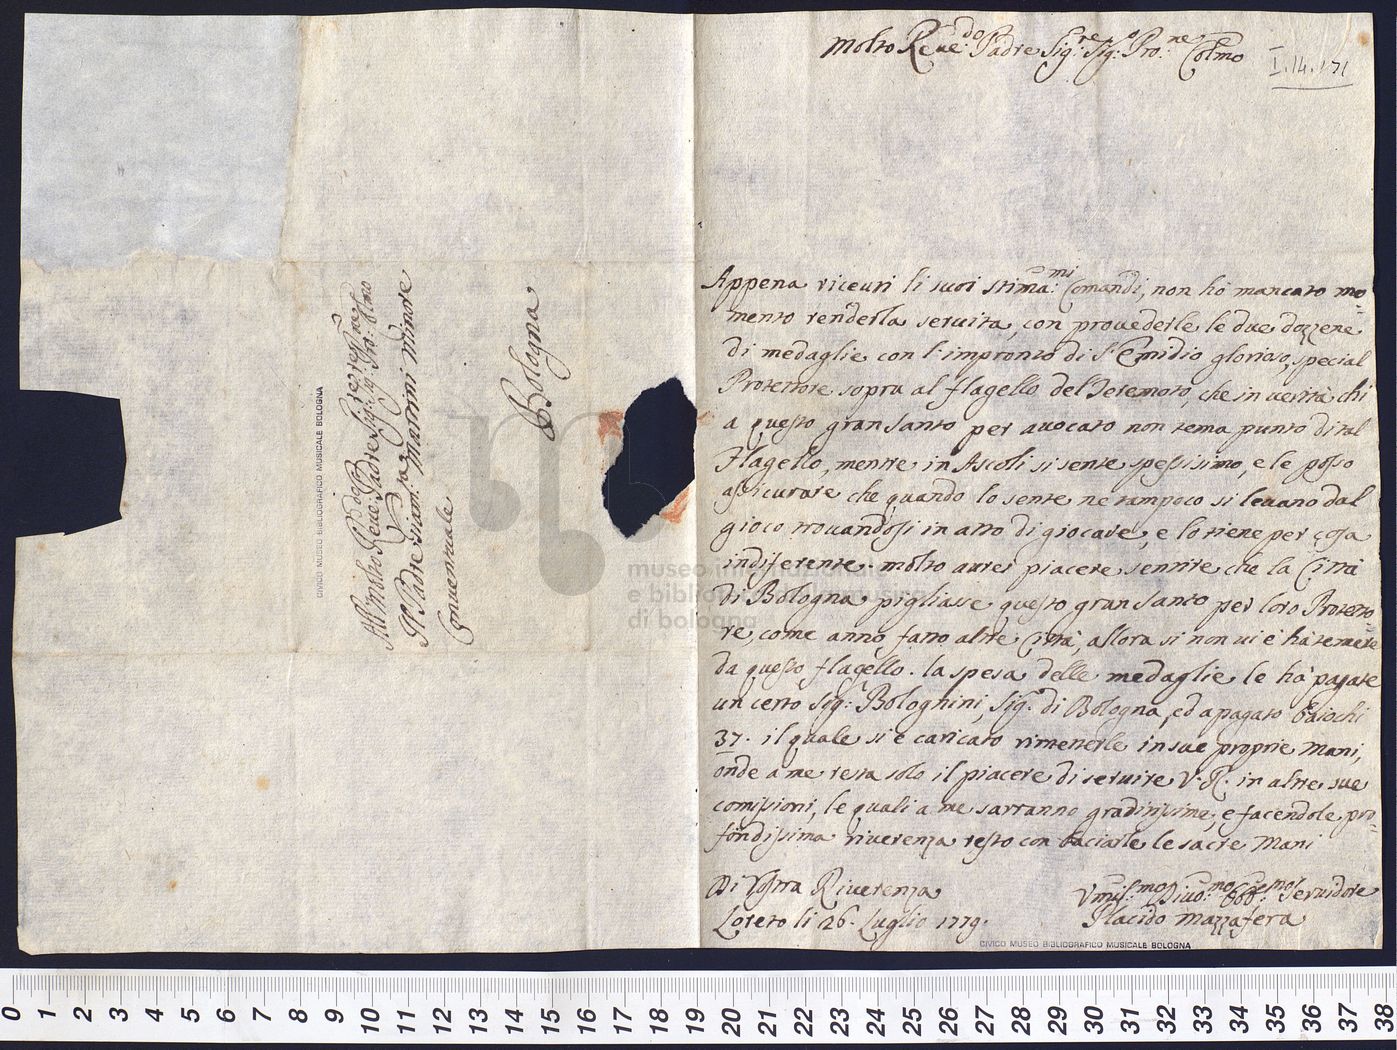 Molto Reue:do Padre Sig:re Sig:o Pro:ne Colmo
I.14.171
Appena riceuri li suoi stima:mi Comandi, non hò mancato mo=
mento renderla seruita, con prouederle le due dozzene
di medaglie con l'impronto di S. Emidio glorioso, special
Protettore sopra al flagello del Teremoto, che in uerità chi
a questo gran Santo per auocato non tema punto di tal
flagello, mentre in Ascoli si sente spessisimo, e le posso
assicurare che quando lo sente ne tampoco si leuano dal
gioco trouandosi in atto di giocare, e lo tiene per cosa
indiferente. molto aurei piacere sentire che la Città
di Bologna pigliasse questo gran Santo per loro Protetto=
re, come anno fatto altre Città, allora si non ui è ha temere
da questo flagello. la spesa delle medaglie le hà pagate
un certo Sig:r Bolognini, Sig:r di Bologna, ed a pagato baiochi
37. il quale si è caricato rimeterle in sue proprie Mani,
onde a me resta solo il piacere di seruire V. R. in altre sue
comissioni, le quali a me sarranno gradinissime, e facendole pro=
fondissima riuerenza resto con baciarle le sacre Mani
Di Vostra Riuerenza
Loreto li 26. Luglio 1779.
Vmil:mo Diuo:mo Obb:mo Seruidore
Placido Mazzafera
All Molto Reue:do Padre Sig:re Sig:re Pro:ne Colmo
Il Padre Giam: Martini Minore
Conuentuale
Bologna
CIVICO MUSEO BIBLIOGRAFICO MUSICALE BOLOGNA
CIVICO MUSEO BIBLIOGRAFICO MUSICALE BOLOGNA
museo internazionale
e biblioteca della musica
di bologna
0 1 2 3 4 5 6 7 8 9 10 11 12 13 14 15 16 17 18 19 20 21 22 23 24 25 26 27 28 29 30 31 32 33 34 35 36 37 38